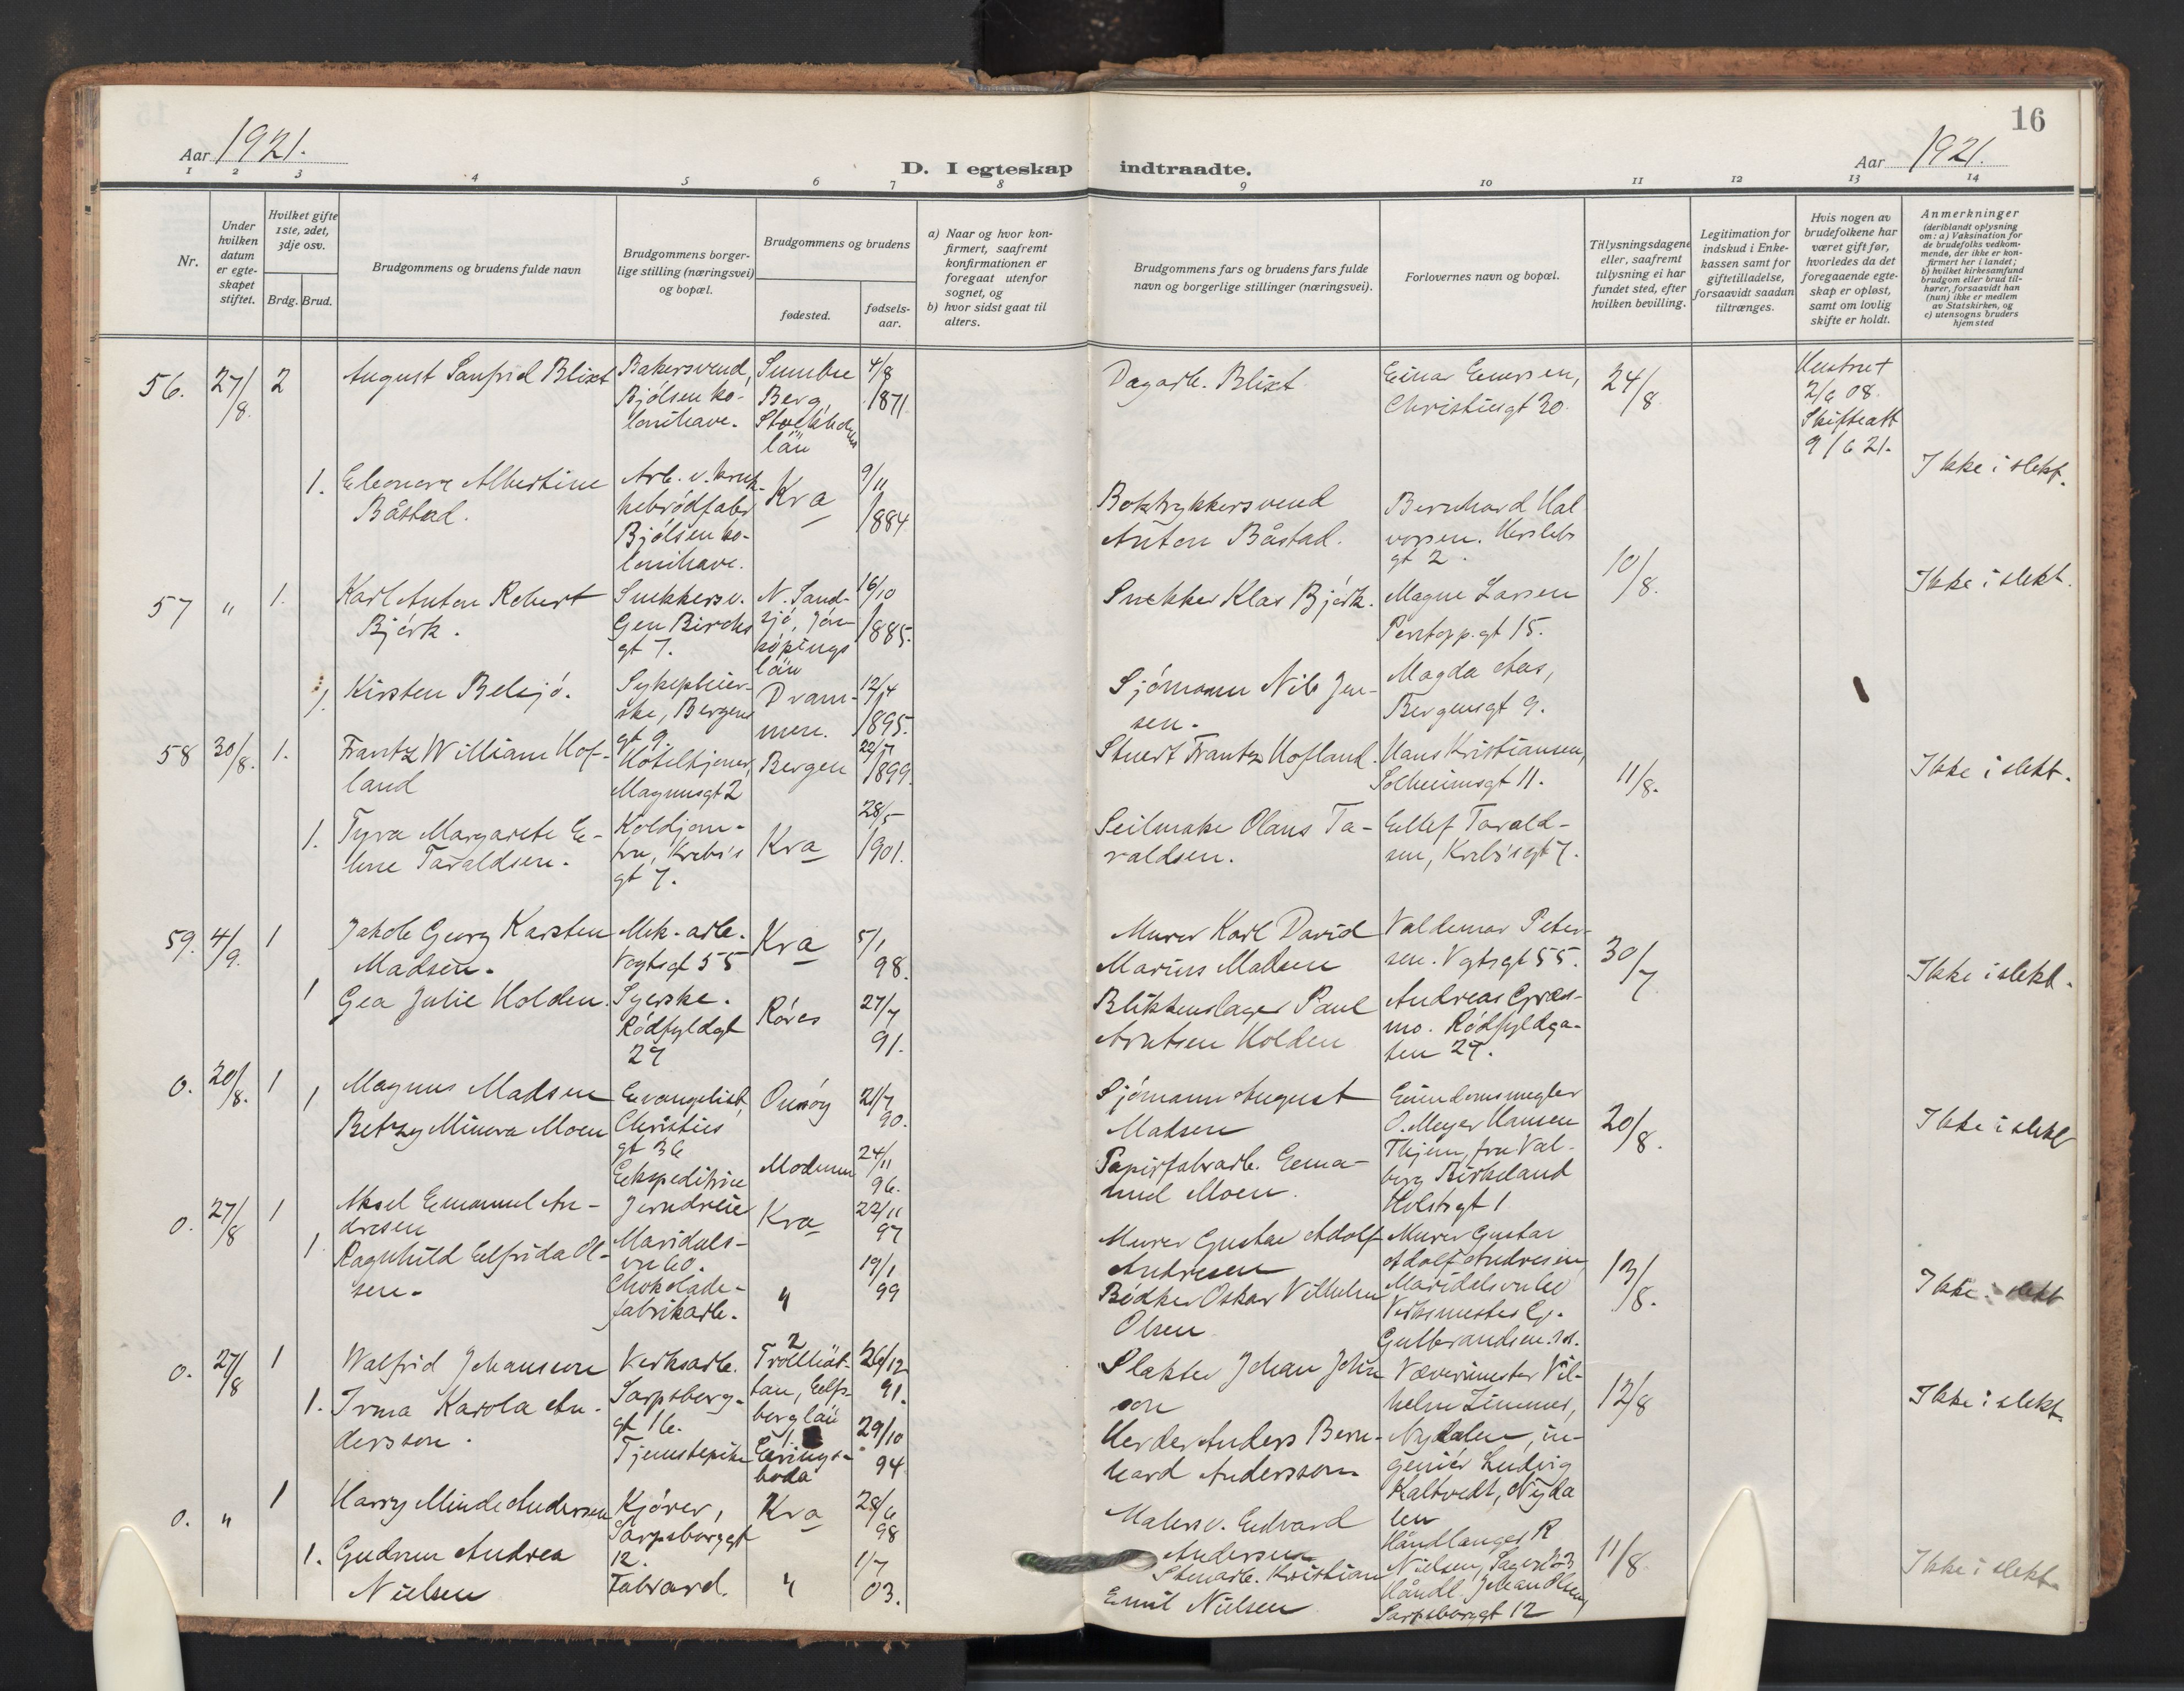 16
Aar 1921.
D. I egteskap indtraadte.
Aar 1921.
1 2 3 4 5 6 7 8 9 10 11 12 13 14
Nr.
Under hvilken datum er egteskapet stiftet.
Hvilket gifte 1ste, 2det, 3dje osv.
Brdg. Brud.
Brudgommens og brudens fulde navn
Brudgommens borgerlige stilling (næringsvei) og bopæl.
Brudgommens og brudens
fødested.
fødselsaar.
a) Naar og hvor konfirmert, saafremt konfirmationen er foregaat utenfor sognet, og
b) hvor sidst gaat til alters.
Brudgommens fars og brudens fars fulde navn og borgerlige stillinger (næringsvei).
Forlovernes navn og bopæl.
Tillysningsdagene eller, saafremt tillysning ei har fundet sted, efter hvilken bevilling.
Legitimation for indskud i Enkekassen samt for giftetilladelse, forsaavidt saadan tiltrænges.
Hvis nogen av brudefolkene har været gift før, hvorledes da det foregaaende egteskap er opløst, samt om lovlig skifte er holdt.
Anmerkninger (deriblandt oplysning om: a) Vaksination for de brudefolks vedkommende, der ikke er konfirmert her i landet; b) hvilket kirkesamfund brudgom eller brud tilhører, forsaavidt han (hun) ikke er medlem av Statskirken, og c) utensogns bruders hjemsted
56. 27/8. 2 August Sanfrid Blixt Bakersvend, Bjölsen kolonihave. Berg, län 4/8 1871. Dagarb. Blixt Einar Enersen, Christiesgt 30. 24/8 2/6 08. Skifteatt 9/6 21.
1. Eleonore Albertine Båstad. Arb. v. Bjölsen kolonihave. Kra 9/11 1884 Boktrykkersvend Anton Båstad. Bernhard Halvorsen. Herslebs gt 2. Ikke i slekt.
57 " 1. Karl Anton Robert Björk. Snekkersv. Gen Birchs gt 7. N. Sandsjö, Jönköpings län 16/10 1885. Snekker Klas Björk. Magne Larsen gt 15. 10/8. Ikke i slekt.
1. Kirsten Belsjö. Bergens gt 9. Drammen. 12/4 1895. Sjömann Nils Jensen. Magda Aas, Bergensgt 9.
58 30/8. 1. Frantz William Hofland Hotelltjener, Magnusgt 2 Bergen 22/7 1899. Stuert Frantz Hofland. Hans Kristiansen, Solheimsgt 11. 11/8. Ikke i slekt.
1. Tyra Margarete Eline Taraldsen. Koldjomfru, Krebs's gt 7. Kra 28/5 1901. Seilmaker Olaus Taraldsen. Ellef Taraldsen, Krebs's gt 7.
59. 4/9. 1 Jakob Georg Karsten Madsen. Mek. arb. Vogtsgt 55 Kra 5/1 98. Murer Karl David Marius Madsen Valdemar Petersen. Vogtsgt 55. 30/7 Ikke i slekt.
1 Gea Julie Holden. Syerske. Rödfyldgt 29 Röros 27/7 91. Blikkenslager Paul Arntsen Holden Andreas Rödfyldgaten 29.
0. 20/8. 1 Magnus Madsen Evangelist, Christies gt 36 Onsöy 21/7 90. Sjömann August Madsen Eiendomsmegler O. Meyer Hansen 20/8. Ikke i slekt
1 Betzy Minora Moen Ekspeditrice Modum 24/11 96. Papirfabrarb. Moen. Birkeland Holstsgt 1
0. 27/8 1 Aksel Emanuel Andresen Jerndreier Maridalsvn 60. Kra 22/11 97 Murer Gustav Adolf Andresen Murer Gustav Adolf Andresen Maridalsvn 60 13/8. Ikke i slekt
1. Ragnhild Elfrida Olsen. Chokoladefabrikarb. " 19/1 99 Bödker Oskar Vilhelm Olsen Verksmester Gulbrandsen.
0. 27/8 1 Walfrid Johansson Verksarb. Sarpsborggt 16. 2 Trollhättan, Elfsborg län 26/12 91. Slakter Johan Johnson Væverimester Vilhelm Zimmer, Nydalen, 12/8 Ikke i slekt.
1. Irma Karola Andersson. Tjenestepike Eringsboda 29/10 94 Herder Anders Bernhard Andersson ingeniör Ludvig Kaltvedt, Nydalen
0. " 1 Harry Minde Andersen Kjörer, Sarpsborggt 12. Kra 28/6 98 Malersv. Edvard Andersen Håndlanger R Nielsen, 11/8 Ikke i slekt.
1. Gudrun Andrea Nielsen Fabrarb. " 1/7 03. Stenarb. Kristian Emil Nielsen Håndl. Johan Olsen, Sarpsborggt 12